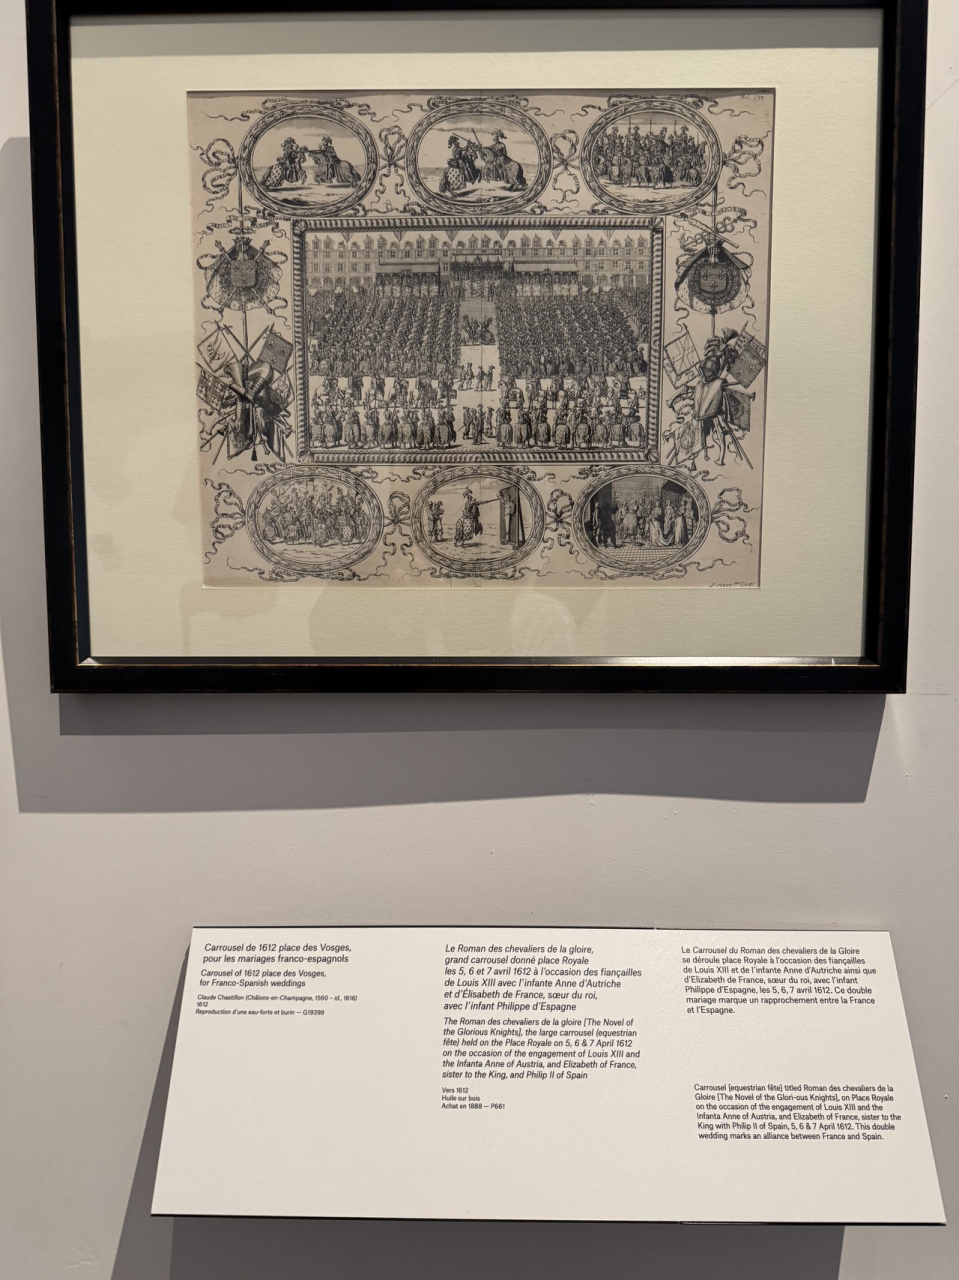 Carrousel de 1612 place des Vosges,
pour les mariages franco-espagnols
Carousel of 1612 place des Vosges,
for Franco-Spanish weddings
Claude Chastillon (Châlons-en-Champagne, 1560 - id., 1616)
1612
Reproduction d'une eau-forte et burin — G19398
Le Roman des chevaliers de la gloire,
grand carrousel donné place Royale
les 5, 6 et 7 avril 1612 à l'occasion des fiançailles
de Louis XIII avec l'infante Anne d'Autriche
et d'Élisabeth de France, sœur du roi,
avec l'infant Philippe d'Espagne
The Roman des chevaliers de la gloire [The Novel of
the Glorious Knights], the large carrousel (equestrian
fête) held on the Place Royale on 5, 6 & 7 April 1612
on the occasion of the engagement of Louis XIII and
the Infanta Anne of Austria, and Elizabeth of France,
sister to the King, and Philip II of Spain
Vers 1612
Huile sur bois
Achat en 1888 — P661
Le Carrousel du Roman des chevaliers de la Gloire
se déroule place Royale à l'occasion des fiançailles
de Louis XIII et de l'infante Anne d'Autriche ainsi que
d'Elizabeth de France, sœur du roi, avec l'infant
Philippe d'Espagne, les 5, 6, 7 avril 1612. Ce double
mariage marque un rapprochement entre la France
et l'Espagne.
Carrousel [equestrian fête] titled Roman des chevaliers de la
Gloire [The Novel of the Glori-ous Knights], on Place Royale
on the occasion of the engagement of Louis XIII and the
Infanta Anne of Austria, and Elizabeth of France, sister to the
King with Philip II of Spain, 5, 6 & 7 April 1612. This double
wedding marks an alliance between France and Spain.